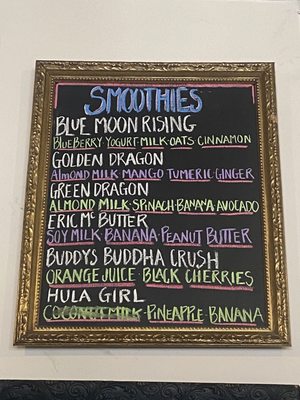 SMOOTHIES
BLUE MOON RISING
BLUEBERRY·YOGURT·MILK·OATS CINNAMON
GOLDEN DRAGON
ALMOND MILK MANGO TUMERIC GINGER
GREEN DRAGON
ALMOND MILK·SPINACH·BANANA AVOCADO
ERIC Mc BUTTER
SOY MILK·BANANA PEANUT BUTTER
BUDDYS BUDDHA CRUSH
ORANGE JUICE·BLACK CHERRIES
HULA GIRL
COCONUT MILK·PINEAPPLE BANANA